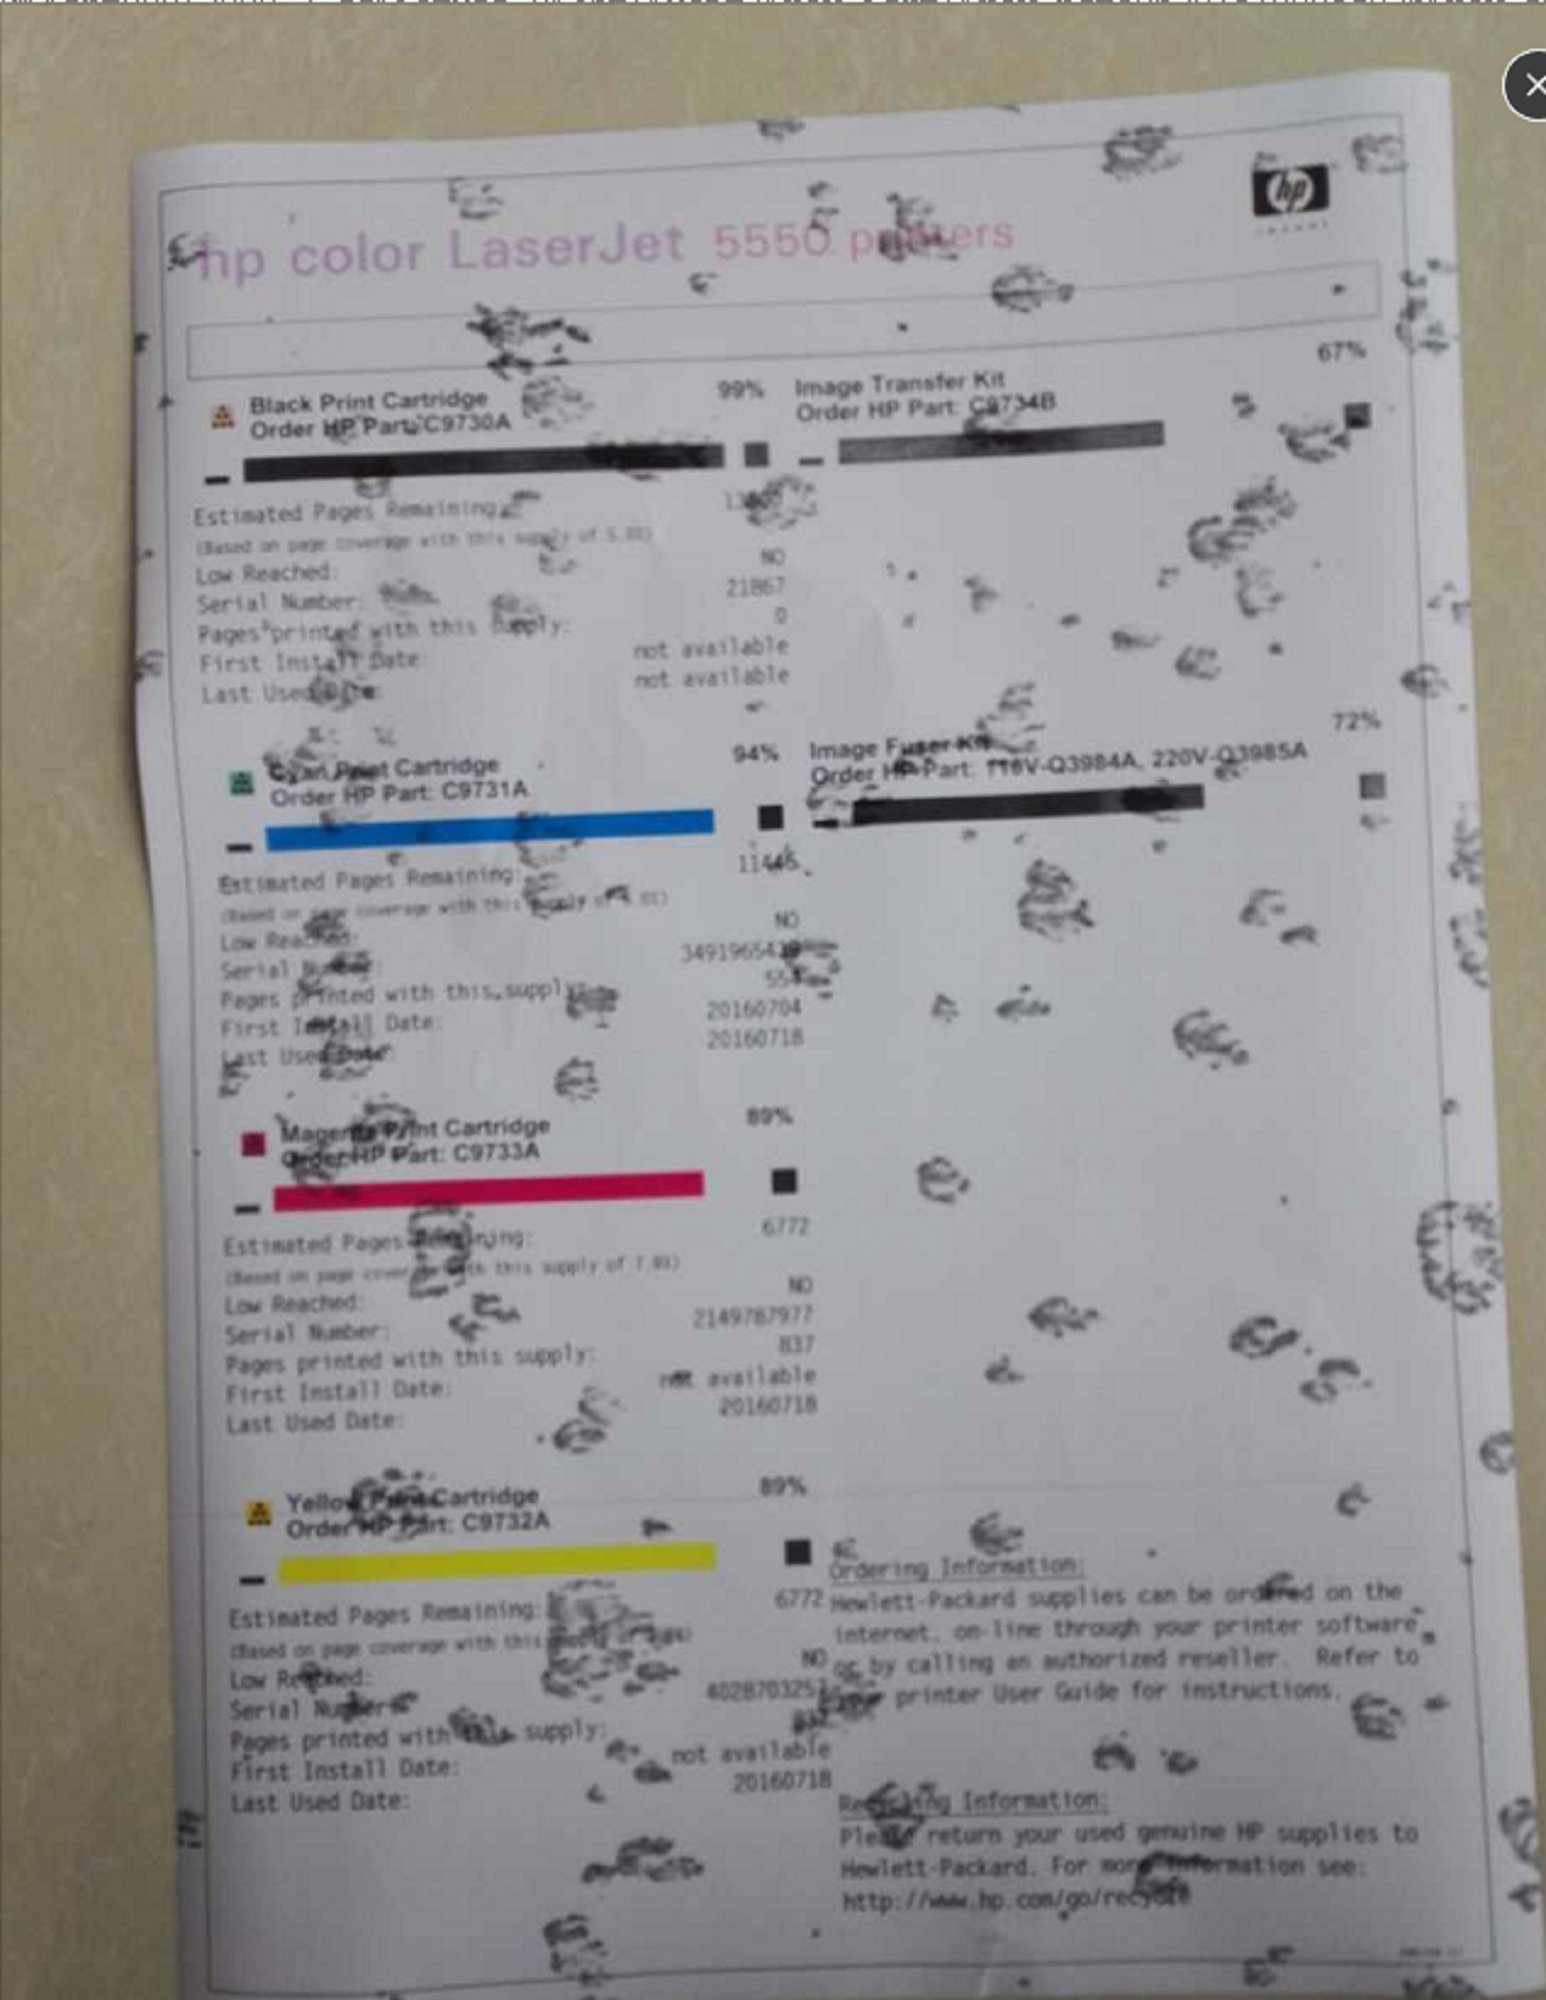 hp
invent
hp color LaserJet 5550 printers
Black Print Cartridge
Order HP Part: C9730A
99%
Estimated Pages Remaining:
(Based on page coverage with this supply of 5.0%)
Low Reached: NO
Serial Number: 21867
Pages printed with this supply: 0
First Install Date: not available
Last Used Date: not available
Cyan Print Cartridge
Order HP Part: C9731A
94%
Estimated Pages Remaining: 11446
(Based on page coverage with this supply of
Low Reached: NO
Serial Number:
Pages printed with this supply:
First Install Date: 20160704
Last Used Date: 20160718
Magenta Print Cartridge
Order HP Part: C9733A
89%
Estimated Pages Remaining: 6772
(Based on page coverage with this supply of 7.0%)
Low Reached: NO
Serial Number: 2149787977
Pages printed with this supply: 837
First Install Date: not available
Last Used Date: 20160718
Yellow Print Cartridge
Order HP Part: C9732A
89%
Estimated Pages Remaining: 6772
(Based on page coverage with this
Low Reached: NO
Serial Number:
Pages printed with this supply:
First Install Date: not available
Last Used Date: 20160718
Image Transfer Kit
Order HP Part: C9734B
67%
Image Fuser Kit
Order HP Part: 110V-Q3984A, 220V-Q3985A
72%
Ordering Information:
Hewlett-Packard supplies can be ordered on the
internet, on-line through your printer software,
or by calling an authorized reseller. Refer to
your printer User Guide for instructions.
Recycling Information:
Please return your used genuine HP supplies to
Hewlett-Packard. For more information see:
http://www.hp.com/go/recycle